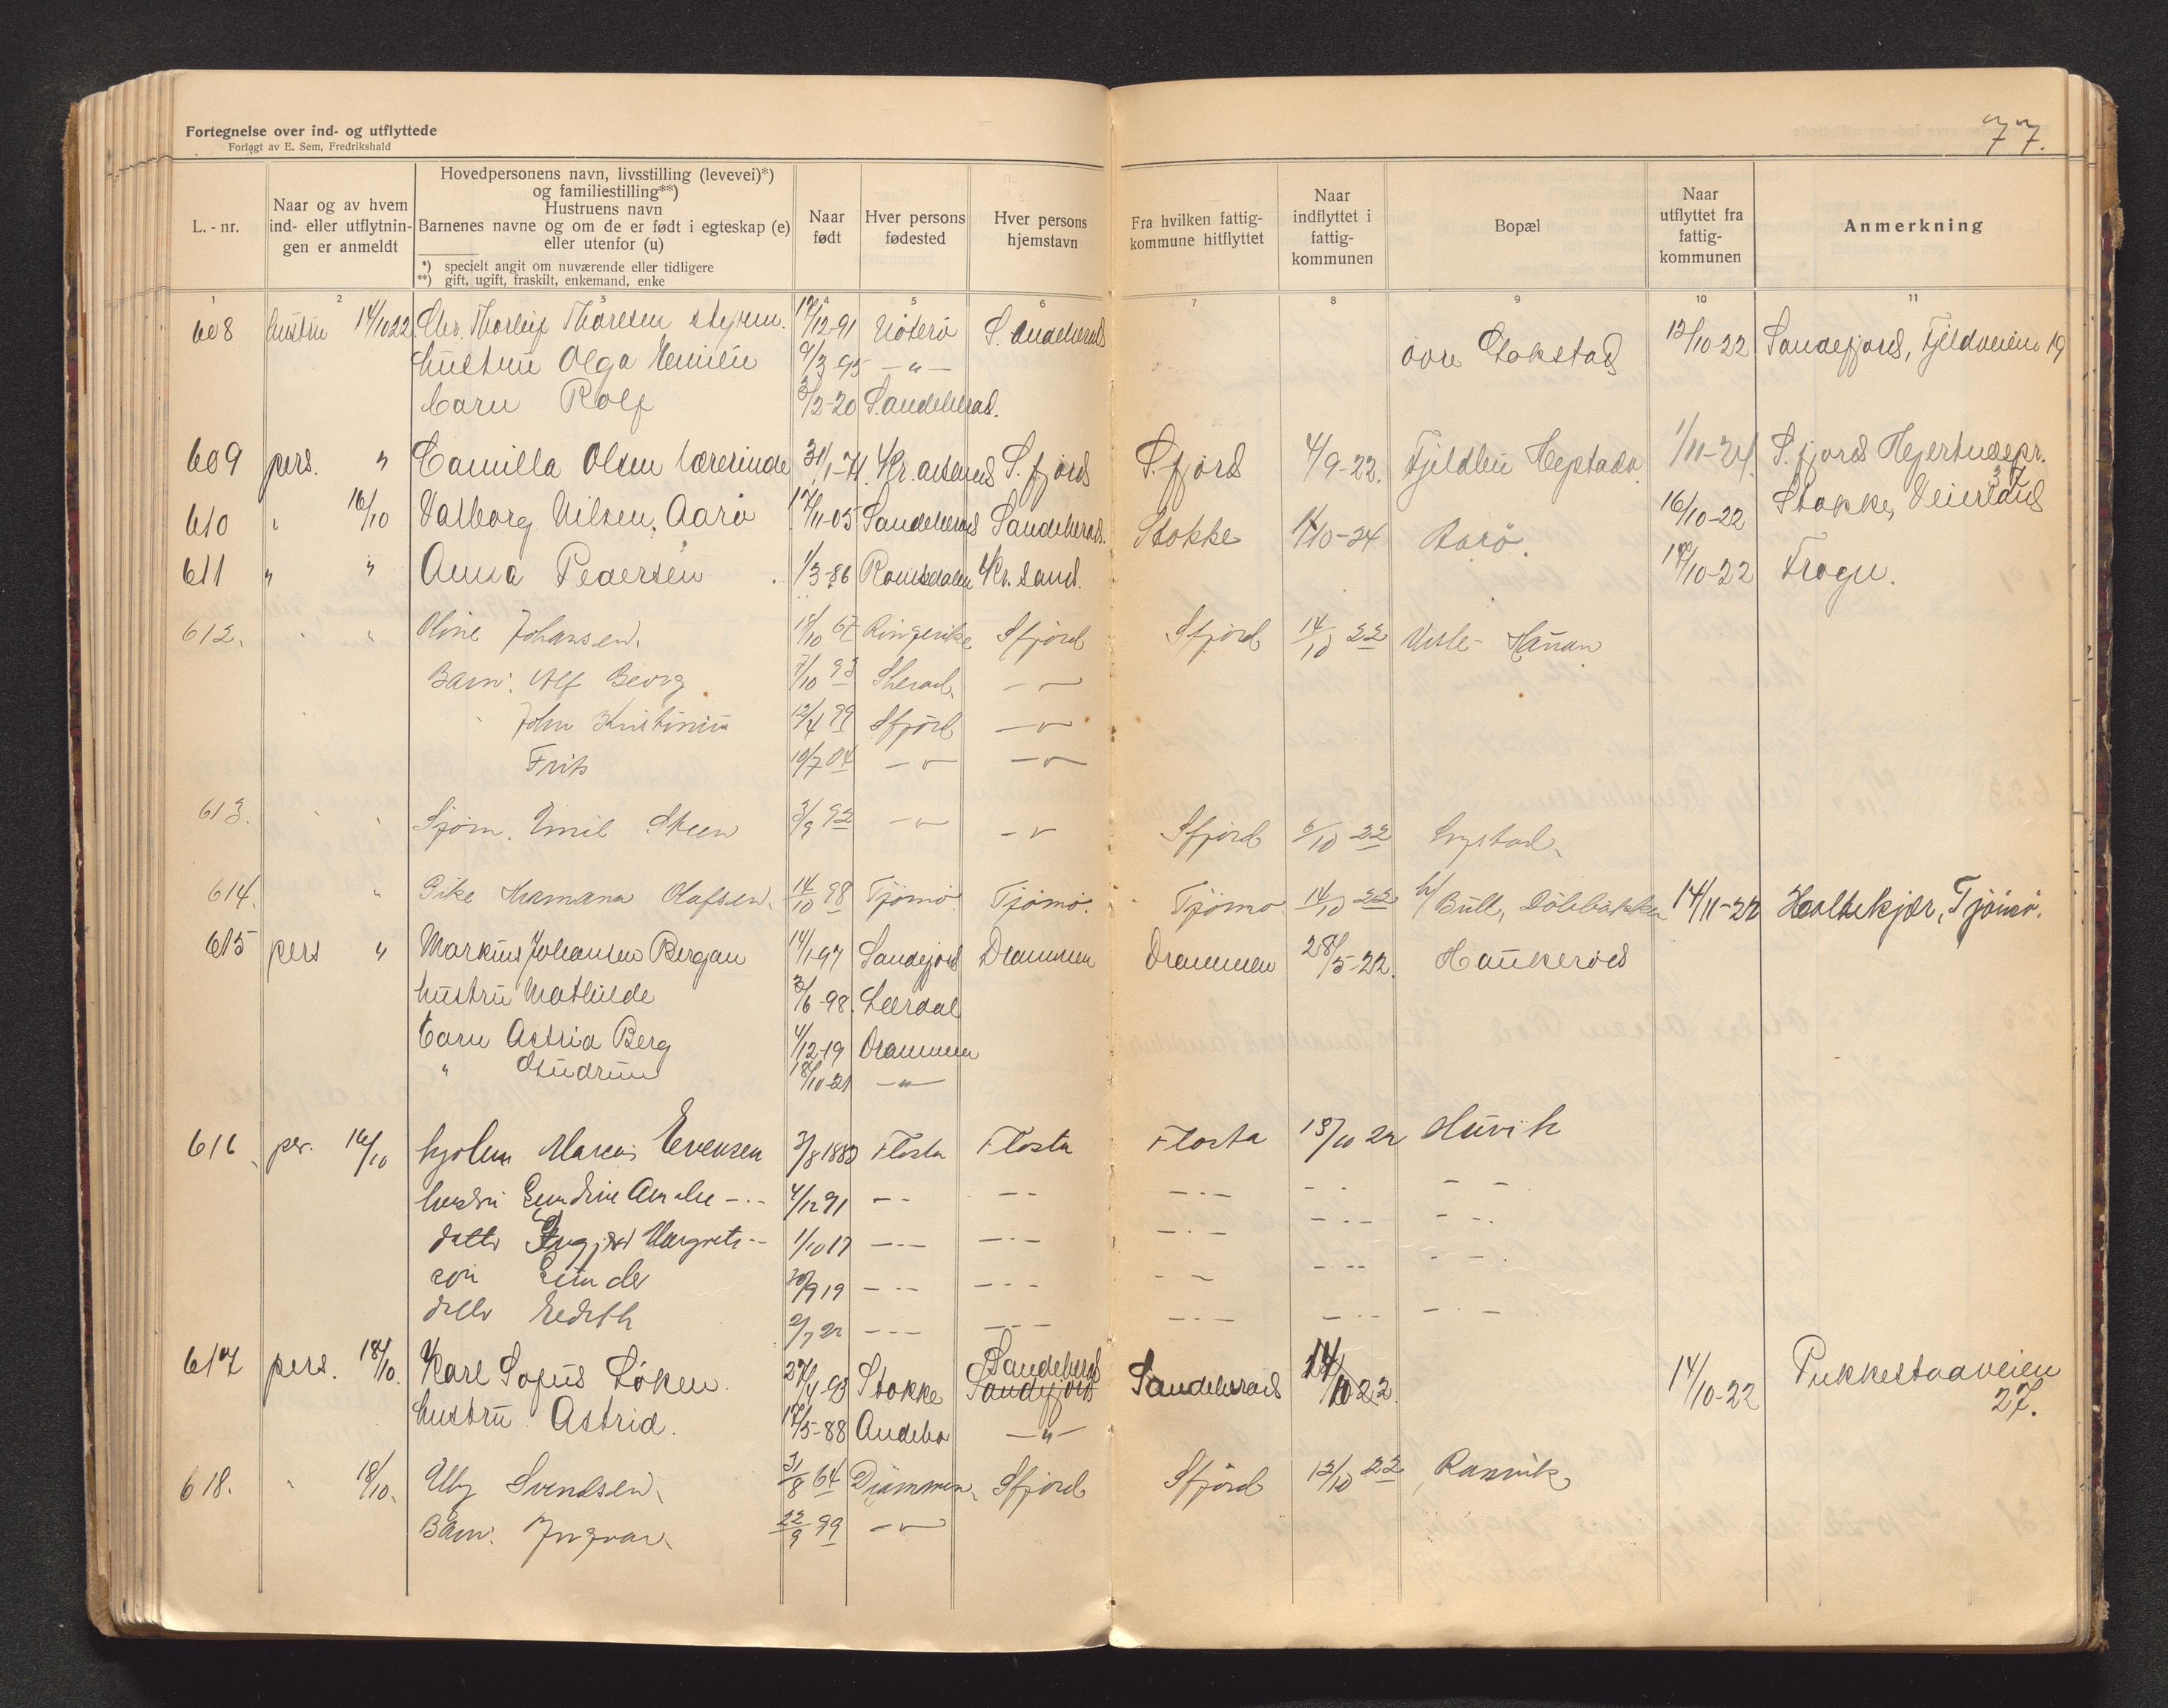 Fortegnelse over ind- og utflyttede
Forlagt av E. Sem, Fredrikshald
77.
L. - nr.
Naar og av hvem ind- eller utflytnin- gen er anmeldt
Hovedpersonens navn, livsstilling (levevei)*)
og familiestilling**)
Hustruens navn
Barnenes navne og om de er født i egteskap (e)
eller utenfor (u)
*) specielt angit om nuværende eller tidligere
**) gift, ugift, fraskilt, enkemand, enke
Naar født
Hver persons fødested
Hver persons hjemstavn
Fra hvilken fattig- kommune hitflyttet
Naar indflyttet i fattig- kommunen
Bopæl
Naar utflyttet fra fattig- kommunen
Anmerkning
1 2 3 4 5 6 7 8 9 10 11
608 hustru 14/10 22 Chr. Thorleif Thoresen styrm. 17/12-91 Nøterø S. andeherad øvre Gokstad 12/10-22 Sandefjord, Fjeldveien 19
hustru Olga Emilie 9/3-95 -"-
barn Rolf 3/2-20 Sandeherad.
609 pers. " Camilla Olsen lærerinde 31/1-71 Kr. S. fjord S. fjord 4/9-22. Fjeldlii 1/11-24. S. fjord
610 " 16/10 Valborg Nilsen, Aarø 17/11-05 Sandeherad Sandeherad. Stokke /10-24 Aarø. 16/10-22 Stokke, Veierland
611 " " Anna Pedersen 1/3-86 Romsdalen Kr. sand. /10-22 Frogn.
612. " " Oline Johansen. 18/10 67 Ringerike Sfjord Sfjord 14/10 22 Vesle-
Barn: Alf Georg 7/10 93 Sherad. -"-
John 12/4 99 Sfjord -"-
Frits 10/7 04 -"- -"-
613. " " Sjøm. Emil Steen 3/9 92 -"- -"- Sfjord 6/10 22
614. " Pike Olafsen. 14/10 98 Tjømø Tjømø. Tjømø 14/10 22 h/ Bull, 14/11-22 Holtekjær, Tjømø.
615 pers " Markus Johansen Bergan 14/1-97 Sandefjord Drammen Drammen 28/5-22. Haukerød
hustru Mathilde 3/6-98. Lærdal
barn Astrid Berg 4/12-19 Drammen
" Gudrun 18/10-21 -"-
616 per. 16/10 Evensen 3/8 1882 Flosta Flosta Flosta 13/10 22 Huvik
hustru Amalie -.- 4/12 91 - - - - - . - - . - -
datter Margrete -- 1/10 17 - . - - . - - . - - . - - -.
søn Gunder 30/9 19 - . - - . - - - - -- - - .
datter Edith 2/7 22 - - - - - - - . - - . - - . -
617 pers. 18/10. Karl Sofus Løken. 27/4-93 Stokke Sandeherad Sandefjord Sandeherad 14/10 22. 14/10-22 Pukkestadveien 27.
hustru Astrid. 17/5-88 Andebo -"-
618. " 18/10. Elby Svendsen. 31/8 64 Drammen. Sfjord Sfjord 12/10 22 Ranvik
Barn: Ingvar. 22/9 99 -"-